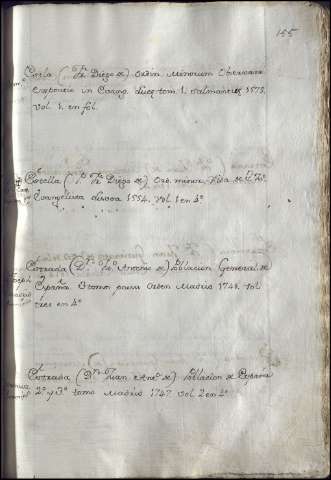 155
Estela (Fr. Diego de) Ordin Minorum Observant
Exposicio in Evang. Luce tom 1. Salmantice 1575.
Vol 1. en fol.
Estella (P. Fr. Diego de) Ord. minor. Vida de S. Ju.
Evangelista Lisboa 1554. Vol 1 en 4º
Estrada (Dn. Ju.º Antonio de) Poblacion General de
España tomo primero Madrid 1748. Vol
tres en 4º
Estrada (Dn. Juan Anto. de) Poblacion de España
2º y 3º tomo Madrid 1747. Vol 2 en 4º